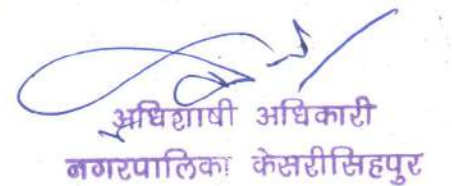 अधिशाषी अधिकारी
नगरपालिका केसरीसिहपुर